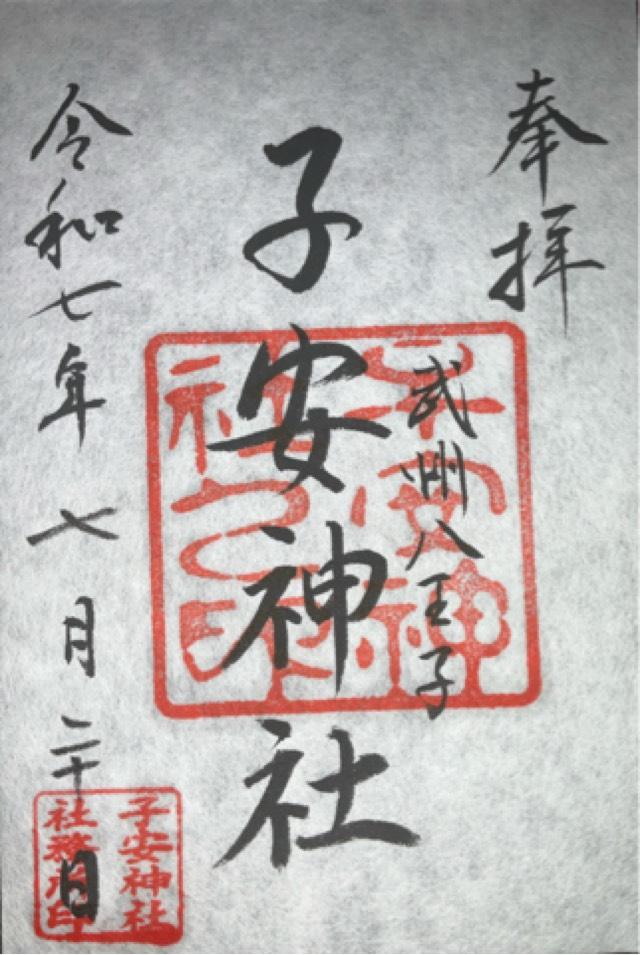 奉拝
武州八王子
子安神社
令和七年七月二十日
子安神社
社務所印